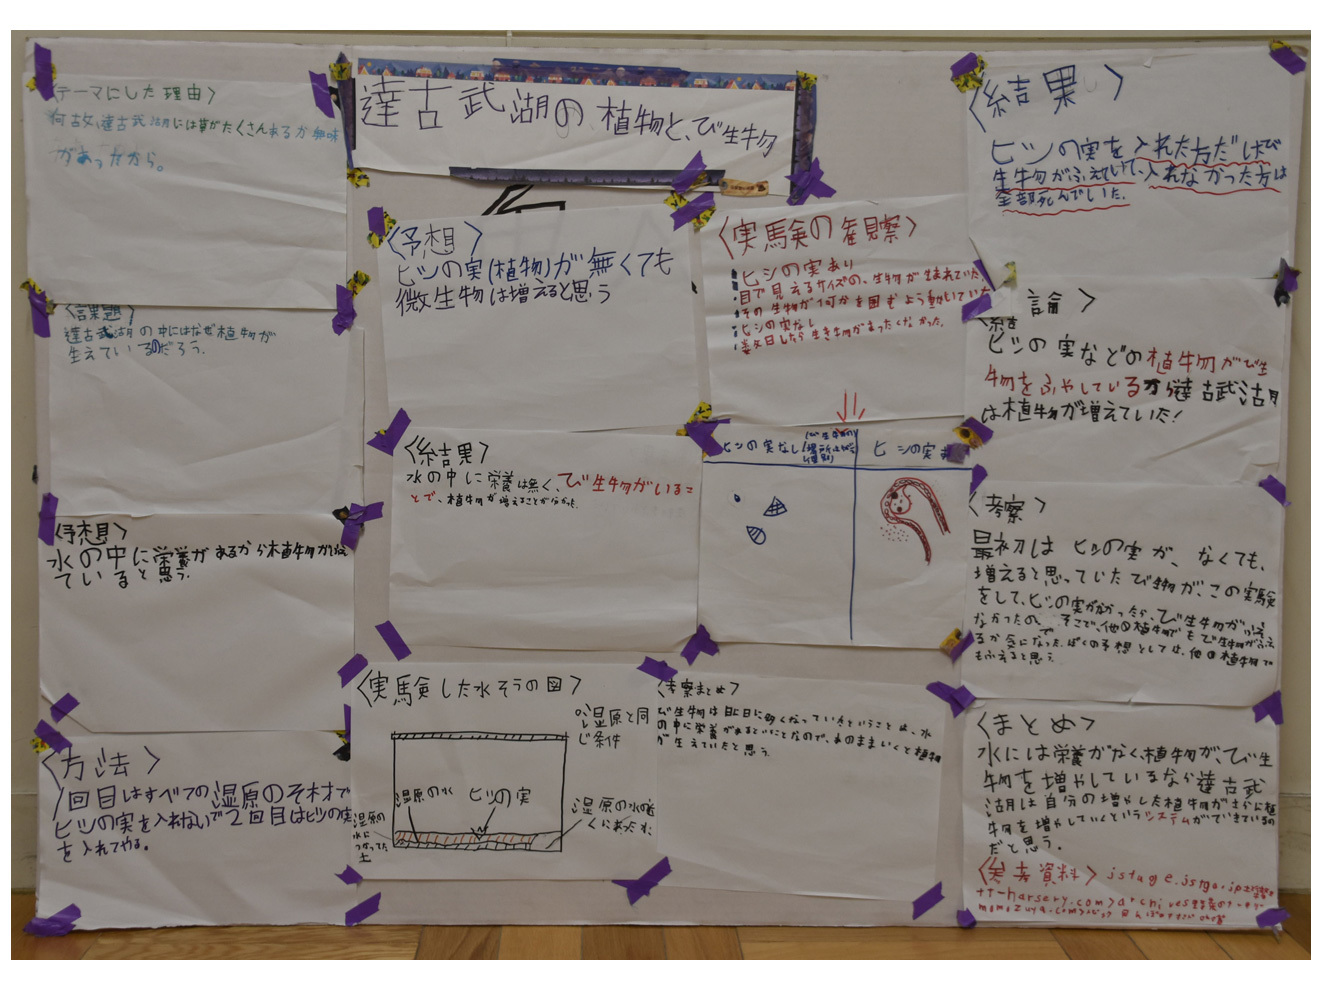 達古武湖の植物と、び生物
〈テーマにした理由〉
何故、達古武湖には貝がたくさんあるか興味
があったから。
〈課題〉
達古武湖の中にはなぜ植物が
生えているのだろう。
〈予想〉
水の中に栄養があるから植物が
ていると思う。
〈方法〉
1回目はすべての湿原のそ材で
ヒシの実を入れないで2回目はヒシの実
を入れてやる。
〈予想〉
ヒシの実(植物)が無くても
微生物は増えると思う
〈結果〉
水の中に栄養は無く、び生物がいるこ
とで、植物が増えることが分かった。
〈実験した水そうの図〉
湿原と同
じ条件
湿原の水
ヒシの実
湿原の
水に
つかってた
土
湿原の水の
〈実験の観察〉
ヒシの実あり
目で見えるサイズの、生物が生まれていた。
その生物が何かを囲むよう動いていた
ヒシの実なし
数日したら生き物がまったくいなかった。
ヒシの実なし
ヒシの実
〈考察まとめ〉
び生物は日に日に多くなっていたということは、水
の中に栄養があるということなので、そのままいくと植物
が生えていたと思う。
〈結果〉
ヒシの実を入れた方だけび
生物がふえていて、入れなかった方は
全部死んでしいた。
結論〉
ヒシの実などの植物がび生
物をふやしているから達古武湖
は植物が増えていた!
〈考察〉
最初は ヒシの実が、なくても、
増えると思っていたび生物が、この実験
をして、ヒシの実がなかったら、び生物がふえ
なかったので、そこで、他の植物でもび生物がふえ
るか気になった。ぼくの予想としては、他の植物で
もふえると思う。
〈まとめ〉
水には栄養がなく、植物が、び生
物を増やしているなら達古武
湖は自分の増やした植物がさらに植
物を増やしていくというシステムができているの
だと思う。
〈参考資料〉